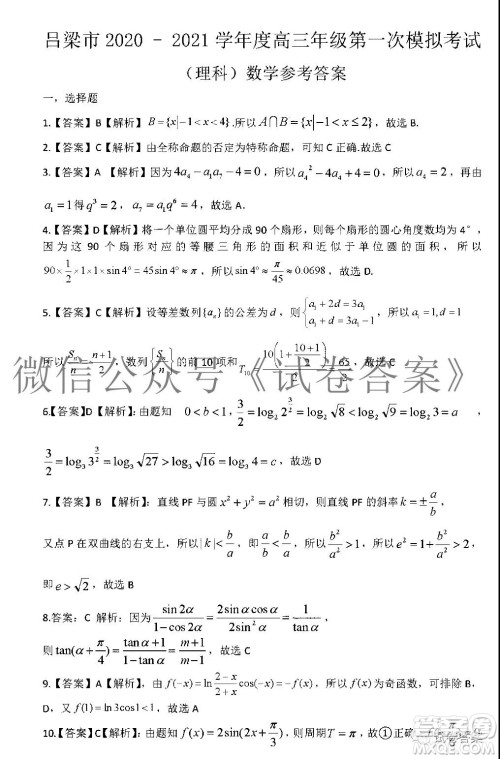 吕梁市 2020 - 2021 学年度高三年级第一次模拟考试
（理科）数学参考答案
一，选择题
1.【答案】B【解析】B={x|-1<x<4}.所以A∩B={x|-1<x≤2}，故选 B.
2.【答案】C【解析】由全称命题的否定为特称命题，可知 C 正确.故选 C
3.【答案】A 【解析】因为4a₄-a₄²-4=0，所以a₄²-4a₄+4=0，再由
a₁=1得q³=2，a₇=a₁q⁶=4，故选 A.
4.【答案】D【解析】将一个单位圆平均分成 90 个扇形，则每个扇形的圆心角度数均为 4°，
因为这 90 个扇形对应的等腰三角形的面积和近似于单位圆的面积，所以
90×1/2×1×1×sin4°=45sin4°≈π，所以sin4°≈π/45≈0.0698，故选 D.
5.【答案】C【解析】设等差数列{aₙ}的公差为d，则{a₁+2d=3a₁, a₁+d=3a₁-1 所以a₁=1,d=1
所以Sₙ/n=(n+1)/2，所以数列{Sₙ/n}的前 10 项和T₁₀=10(1+(10+1)/2)/2=65/2，故选 C
微信公众号《试卷答案》
6.【答案】D【解析】：由题知 0<b<1，3/2=log₂2^(3/2)=log₂√8<log₂√9=log₂3=a，
3/2=log₃3^(3/2)=log₃√27>log₃√16=log₃4=c，故选 D
7.【答案】B 【解析】：直线 PF 与圆x²+y²=a²相切，则直线 PF 的斜率k=±a/b，
又点 P 在双曲线的右支上，所以|k|<b/a，所以a/b<b/a，所以e²=1+b²/a²>2，
即e>√2，故选 B
8.答案：C 解析：因为sin2α/(1-cos2α)=2sinαcosα/2sin²α=1/tanα=m，
则tan(α+π/4)=(tanα+1)/(1-tanα)=(m+1)/(m-1)，故选 C
9.【答案】A【解析】：因为f(-x)=ln(2-x)/(2+x)cos(-x)=-f(x)所以为奇函数，可排除 B，
D，又f(1)=ln3cos1<1，故选 A
10.【答案】C【解析】：由题知f(x)=2sin(2x+π/3)，则周期T=π，故①正确
试卷答案